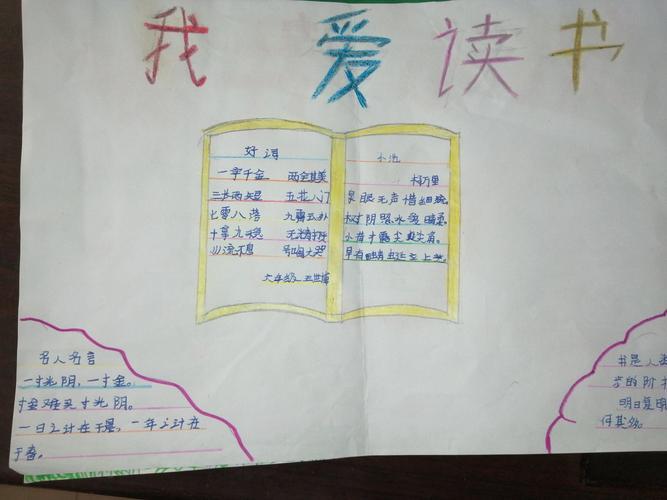 我爱读书
好词
一字千金 两全其美
三长两短 五花八门
七零八落 九霄云外
十拿九稳 无精打采
川流不息 号啕大哭
六年级
小池
杨万里
泉眼无声惜细流。
树阴照水爱晴柔。
小荷才露尖尖角。
早有蜻蜓立上头。
名人名言
一寸光阴，一寸金。
寸金难买寸光阴。
一日之计在于晨，一年之计在
于春。
书是人
步的阶
明日复明
何其多。